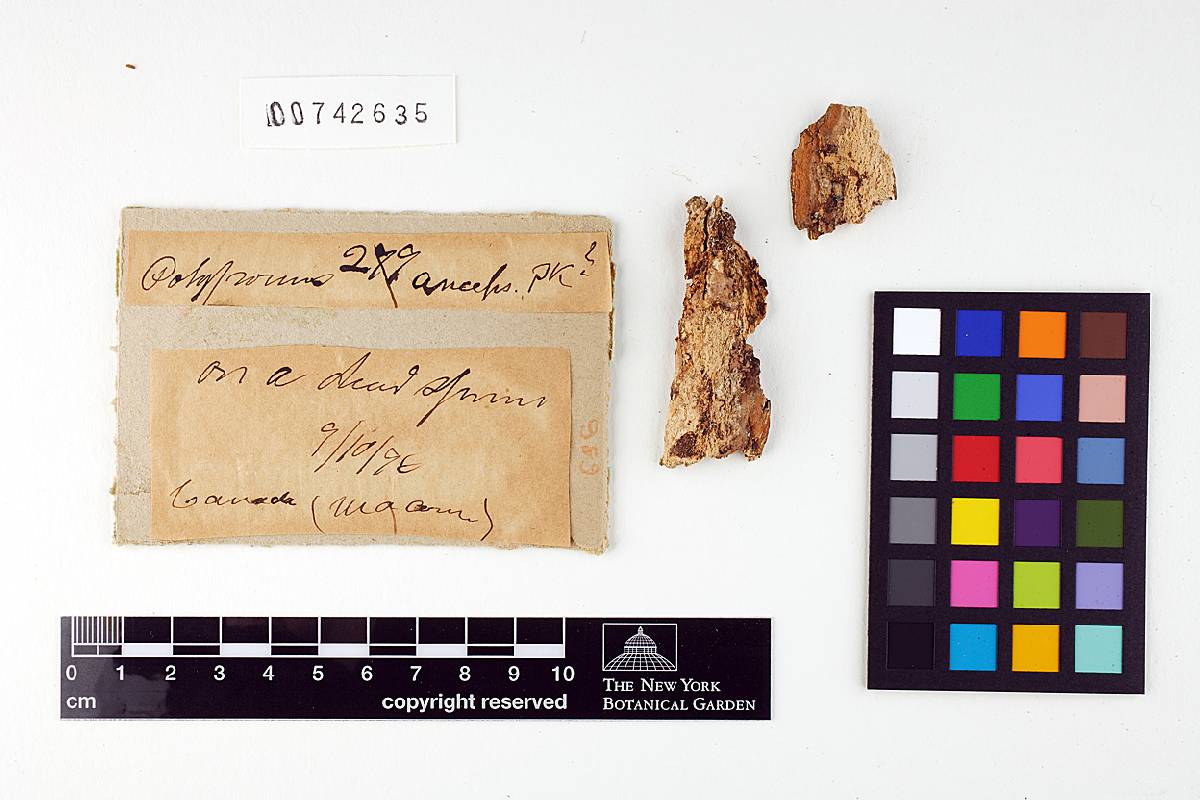 00742635
Polyporus 279 anceps. PK?
on a dead spruce
9/10/96
Canada (Macoun)
639
0 1 2 3 4 5 6 7 8 9 10
cm
copyright reserved
THE NEW YORK
BOTANICAL GARDEN